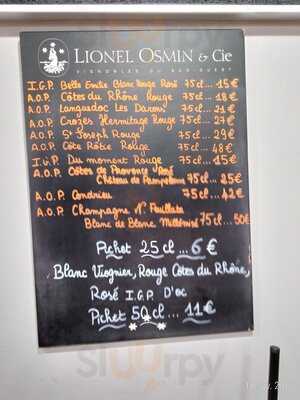 LIONEL OSMIN & Cie
VIGNOBLES DU SUD-OUEST
I.G.P. Belle Emilie Blanc Rouge Rosé 75cl... 15€
A.O.P. Côtes du Rhône Rouge 75cl... 18€
A.O.P. Languedoc Les Darons 75cl... 21€
A.O.P. Crozes Hermitage Rouge 75cl... 27€
A.O.P. St Joseph Rouge 75cl... 29€
A.O.P. Côte Rôtie Rouge 75cl... 48€
I.G.P. Du moment Rouge 75cl... 15€
A.O.P. Côtes de Provence Rosé
Château de Pampelonne 75cl... 25€
A.O.P. Condrieu 75cl... 42€
A.O.P. Champagne N. Feuillate
Blanc de Blanc Millésimé 75cl... 50€
Pichet 25cl... 6€
Blanc Viognier, Rouge Côtes du Rhône,
Rosé I.G.P. D'oc
Pichet 50cl... 11€
Sluurpy